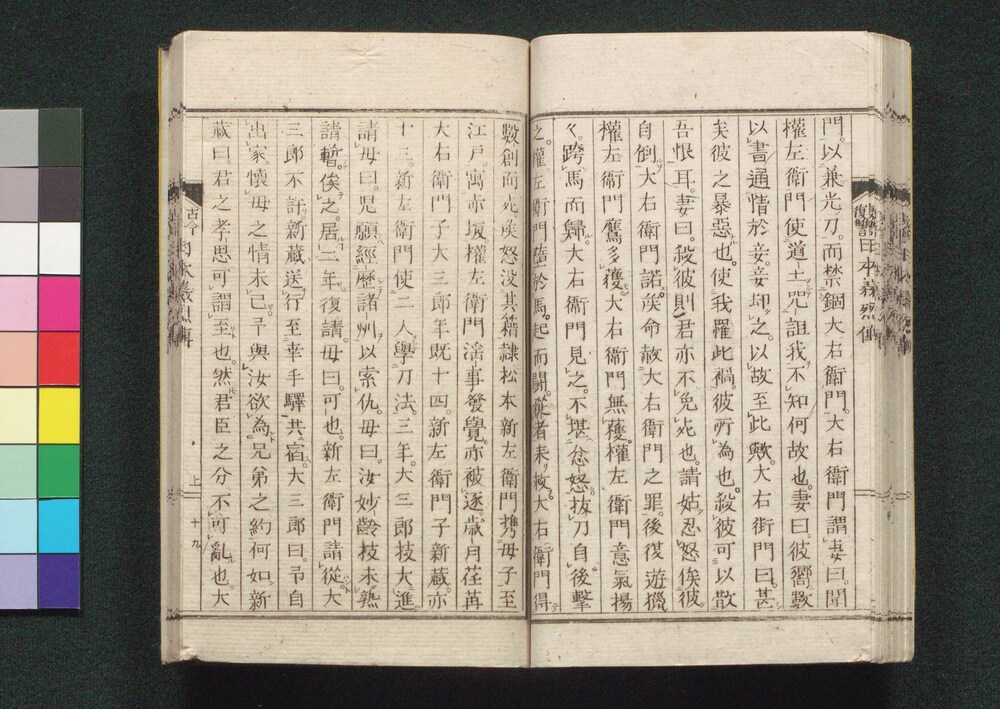 門。以兼光刀。而禁錮大右衛門。大右衛門謂妻曰。聞
權左衛門使道士咒詛我。不知何故也。妻曰。彼嚮數
以書通情於妾。妾却之。以故至此歟。大右衛門曰。甚
矣彼之暴惡也。使我罹此禍。彼所為也。殺彼可以散
吾恨耳。妻曰。殺彼則君亦不免死也。請姑忍怒俟彼
自倒。大右衛門諾。矦命赦大右衛門之罪。後復遊獵
權左衛門鷹多獲。大右衛門無獲。權左衛門意氣揚
々。跨馬而歸。大右衛門見之。不堪忿怒。抜刀自後擊
之。權左衛門墮於馬。起而鬪。從者来救。大右衛門得
數創而死。矦怒没其籍。隷松本新左衛門携母子至
江戸。寓赤坂。權左衛門滛事發覺。亦被逐。歳月荏苒
大右衛門子大三郎年既十四。新左衛門子新蔵。亦
十三。新左衛門使二人學刀法。三年。大三郎技大進
請母曰。児願經歴諸州以索仇。母曰。汝妙齢技未熟
請暫俟之。居二年。復請。母曰。可也。新左衛門請從。大
三郎不許。新蔵送行至幸手驛。共宿。大三郎曰。予自
出家懷母之情未已。予與汝欲為兄弟之約何如。新
蔵曰。君之孝思可謂至也。然君臣之分不可亂也。大
復讐日本義烈傳
古今
上
十九